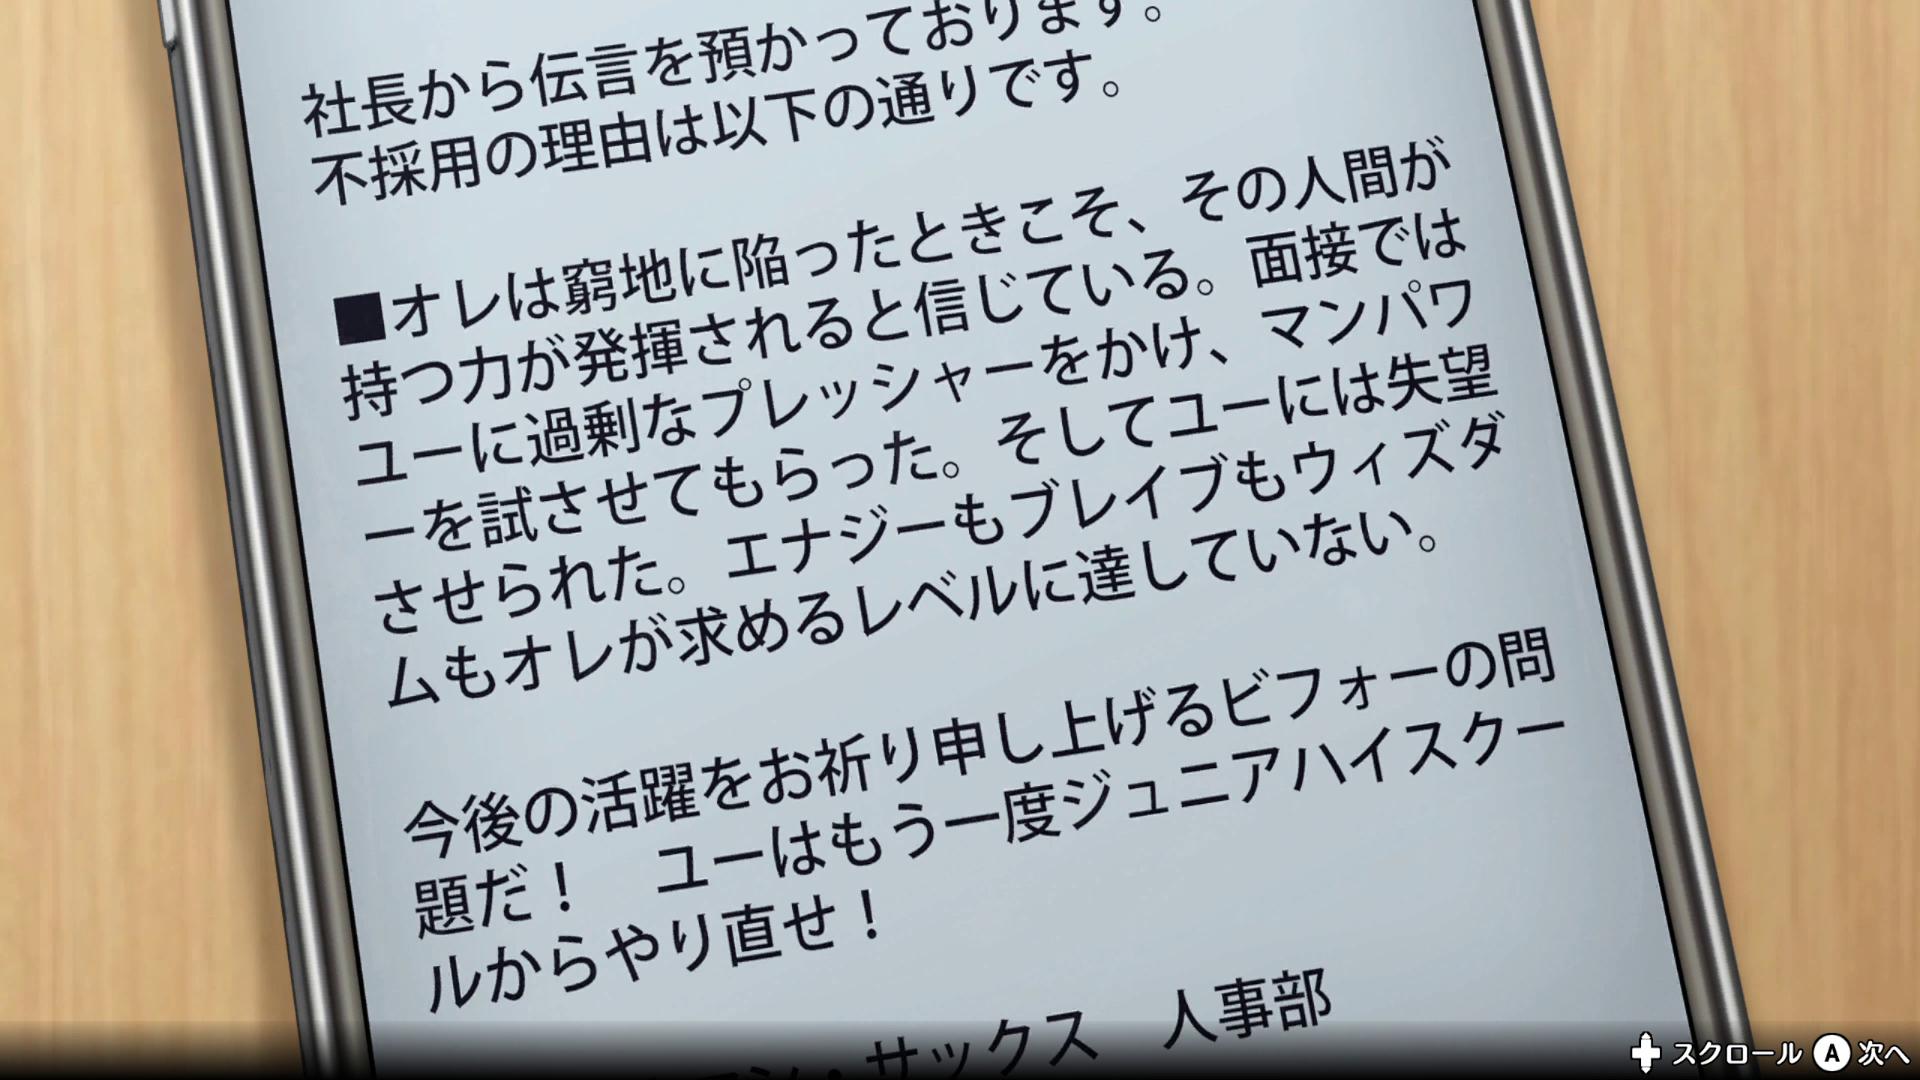 社長から伝言を預かっております。
不採用の理由は以下の通りです。
■オレは窮地に陥ったときこそ、その人間が
持つ力が発揮されると信じている。面接では
ユーに過剰なプレッシャーをかけ、マンパワ
ーを試させてもらった。そしてユーには失望
させられた。エナジーもブレイブもウィズダ
ムもオレが求めるレベルに達していない。
今後の活躍をお祈り申し上げるビフォーの問
題だ！　ユーはもう一度ジュニアハイスクー
ルからやり直せ！
マン・サックス　人事部
スクロール A 次へ